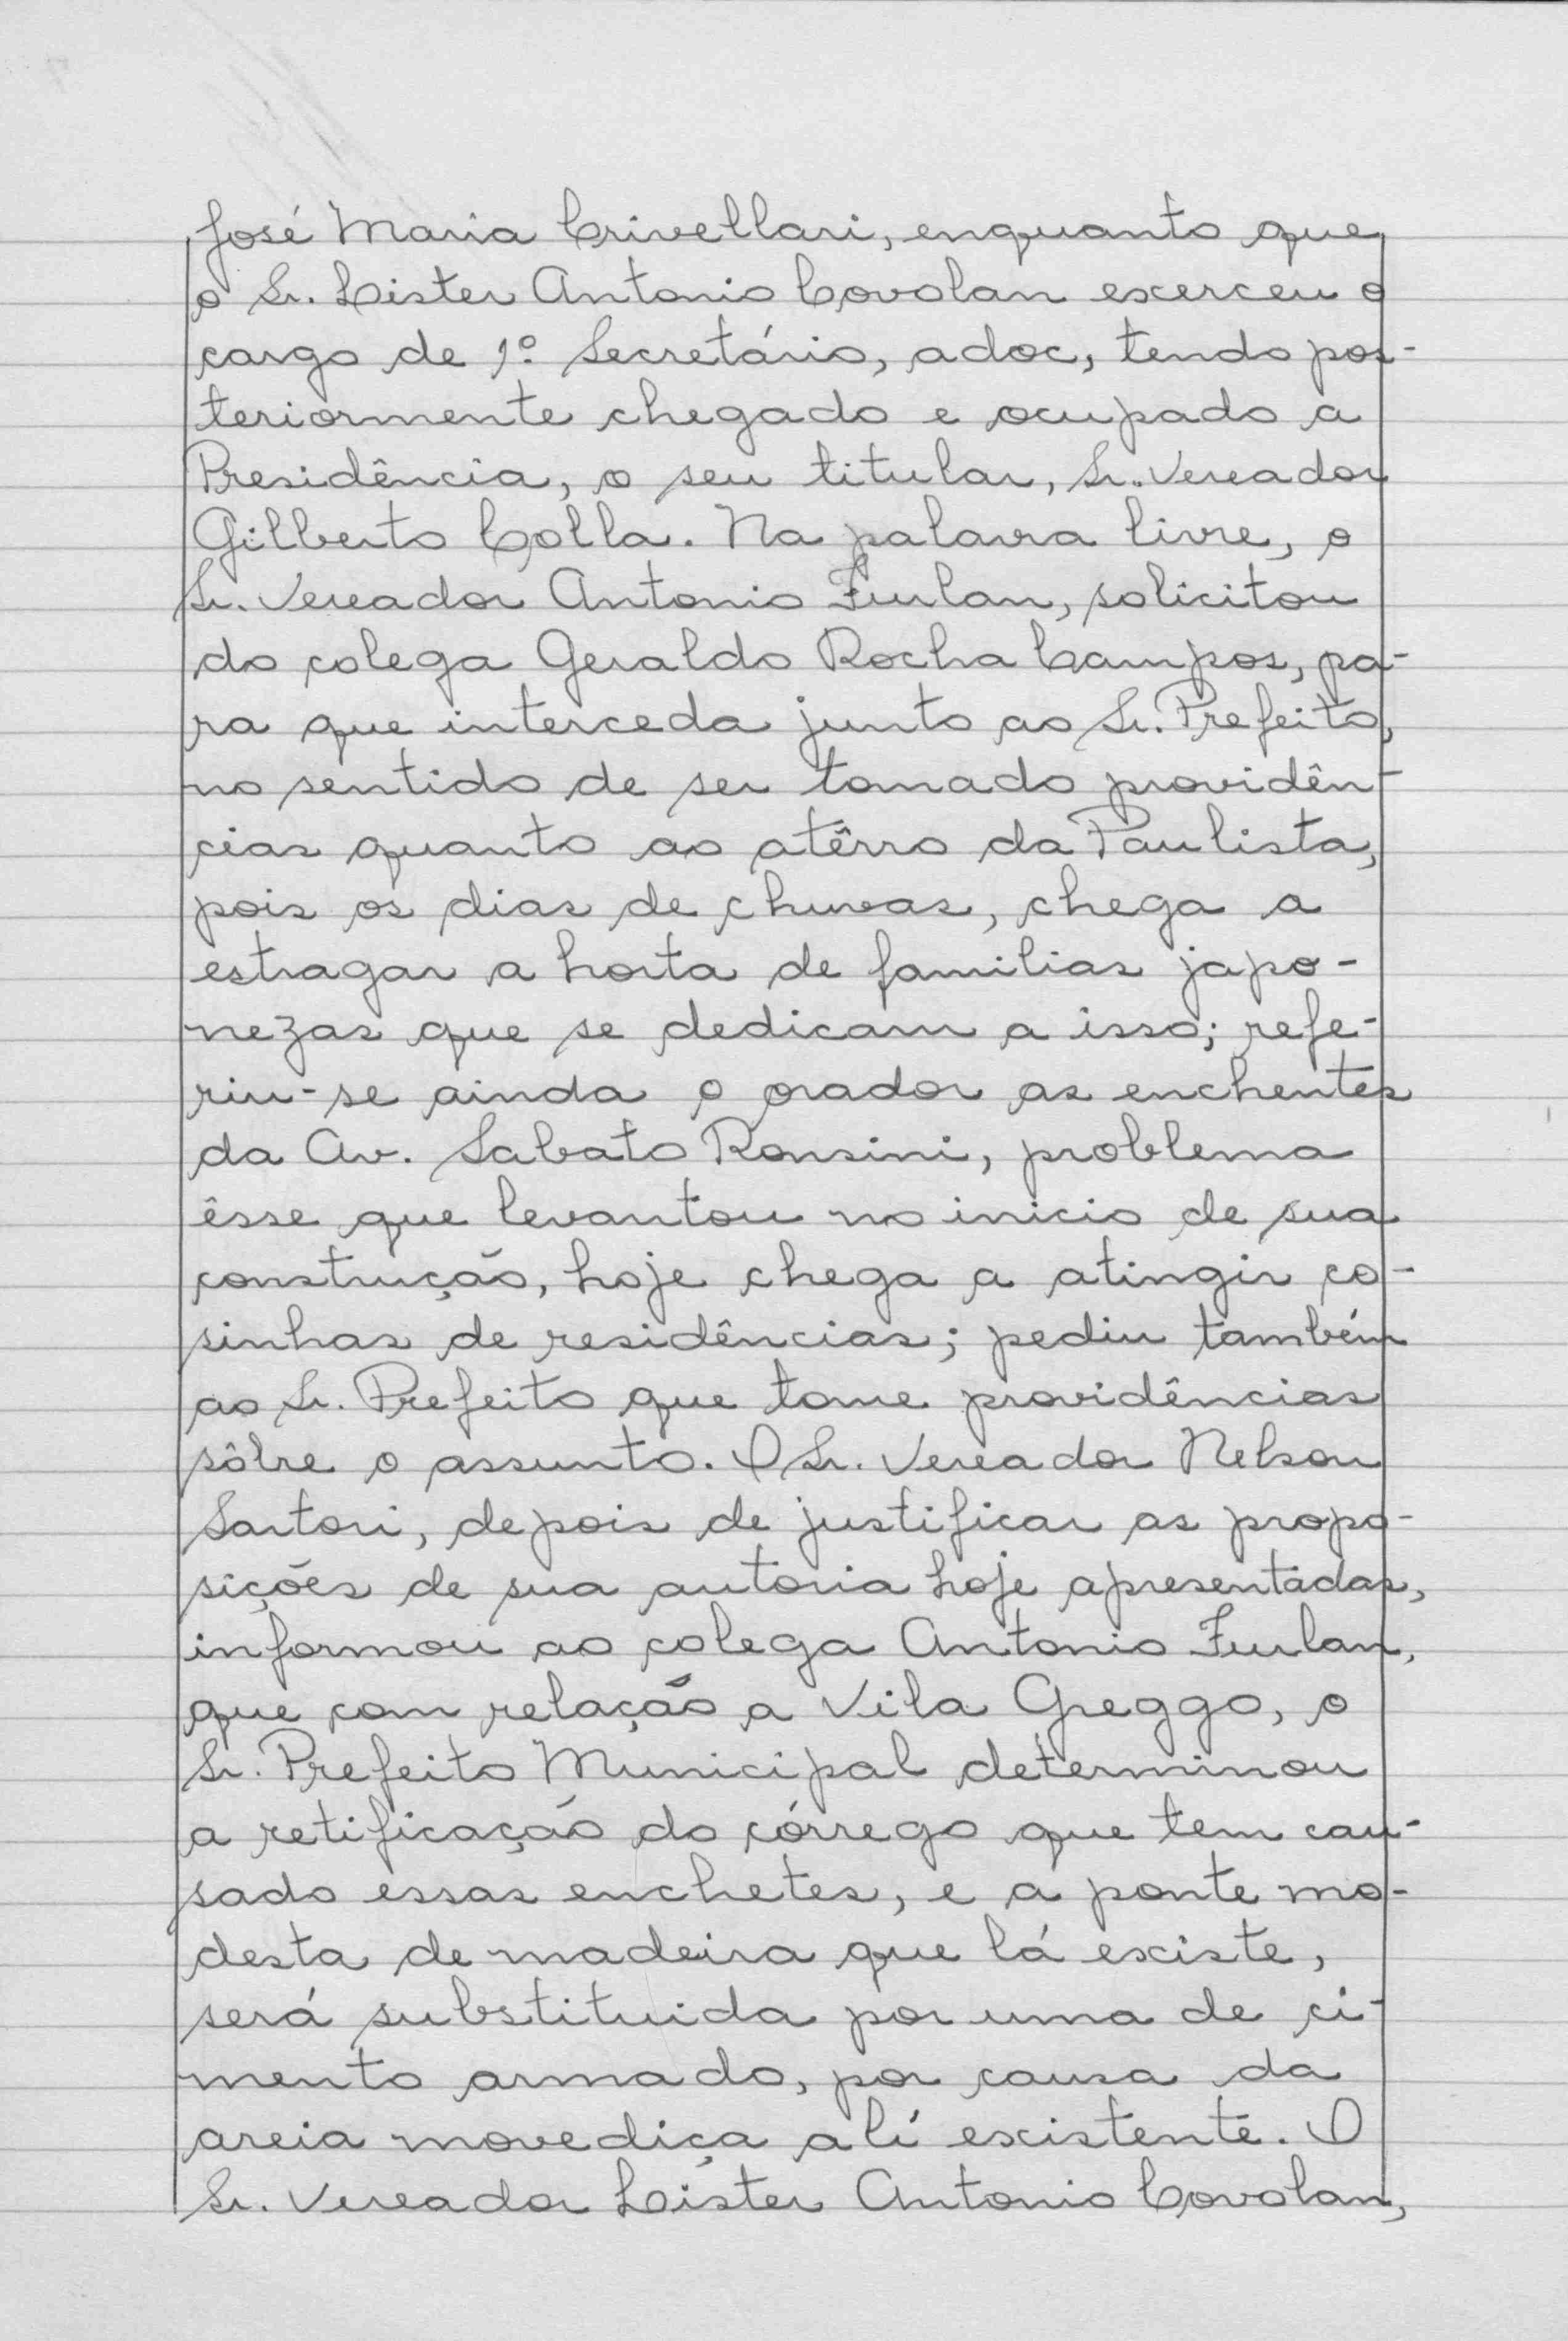 José Maria Crivellari, enquanto que
o Sr. Lister Antonio Covolan exerceu o
cargo de 1º Secretário, adoc, tendo pos-
teriormente chegado e ocupado a
Presidência, o seu titular, Sr. Vereador
Gilberto Colla. Na palavra livre, o
Sr. Vereador Antonio Furlan, solicitou
do colega Geraldo Rocha Campos, pa-
ra que interceda junto ao Sr. Prefeito,
no sentido de ser tomado providên-
cias quanto ao atêrro da Paulista,
pois os dias de chuvas, chega a
estragar a horta de familias japo-
nezas que se dedicam a isso; refe-
riu-se ainda o orador as enchentes
da Av. Sabato Ronsini, problema
êsse que levantou no inicio de sua
construção, hoje chega a atingir co-
sinhas de residências; pediu também
ao Sr. Prefeito que tome providências
sôbre o assunto. O Sr. Vereador Nelson
Sartori, depois de justificar as propo-
sições de sua autoria hoje apresentadas,
informou ao colega Antonio Furlan,
que com relação a Vila Greggo, o
Sr. Prefeito Municipal determinou
a retificação do córrego que tem cau-
sado essas enchetes, e a ponte mo-
desta de madeira que lá existe,
será substituida por uma de ci-
mento armado, por causa da
areia movediça alí existente. O
Sr. Vereador Lister Antonio Covolan,